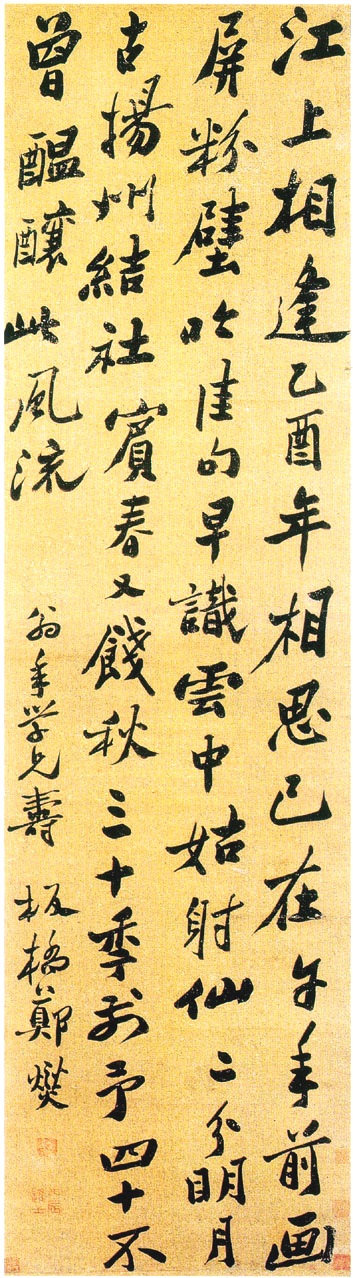 江上相逢乙酉年相思已在午年前画
屏粉壁吟佳句早識雲中姑射仙二分明月
古揚州結社賓春又餞秋三十季前予四十不
曾醖釀此風流
翁年学兄壽 板橋鄭燮